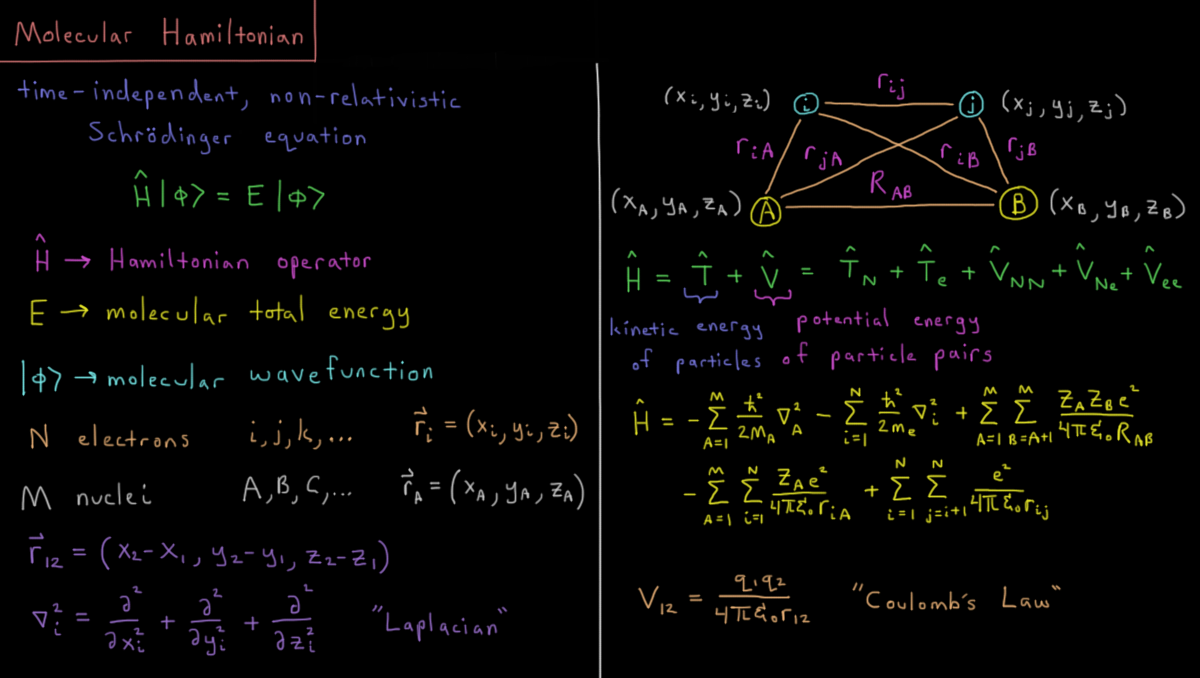 Molecular Hamiltonian
time-independent, non-relativistic
Schrödinger equation
Ĥ|ϕ⟩ = E|ϕ⟩
Ĥ → Hamiltonian operator
E → molecular total energy
|ϕ⟩ → molecular wavefunction
N electrons i, j, k, ... r⃗ᵢ = (xᵢ, yᵢ, zᵢ)
M nuclei A, B, C, ... r⃗_A = (x_A, y_A, z_A)
r⃗₁₂ = (x₂-x₁, y₂-y₁, z₂-z₁)
∇ᵢ² = ∂²/∂xᵢ² + ∂²/∂yᵢ² + ∂²/∂zᵢ² "Laplacian"
(xᵢ, yᵢ, zᵢ) i r_ij j (x_j, y_j, z_j)
r_iA r_jA r_iB r_jB
R_AB
(x_A, y_A, z_A) A B (x_B, y_B, z_B)
Ĥ = T̂ + V̂ = T̂_N + T̂_e + V̂_NN + V̂_Ne + V̂_ee
kinetic energy potential energy
of particles of particle pairs
Ĥ = - Σ_{A=1}^{M} ħ²/2M_A ∇_A² - Σ_{i=1}^{N} ħ²/2m_e ∇_i² + Σ_{A=1}^{M} Σ_{B=A+1}^{M} Z_A Z_B e²/4πε₀R_AB
- Σ_{A=1}^{M} Σ_{i=1}^{N} Z_A e²/4πε₀r_iA + Σ_{i=1}^{N} Σ_{j=i+1}^{N} e²/4πε₀r_ij
V₁₂ = q₁q₂/4πε₀r₁₂ "Coulomb's Law"